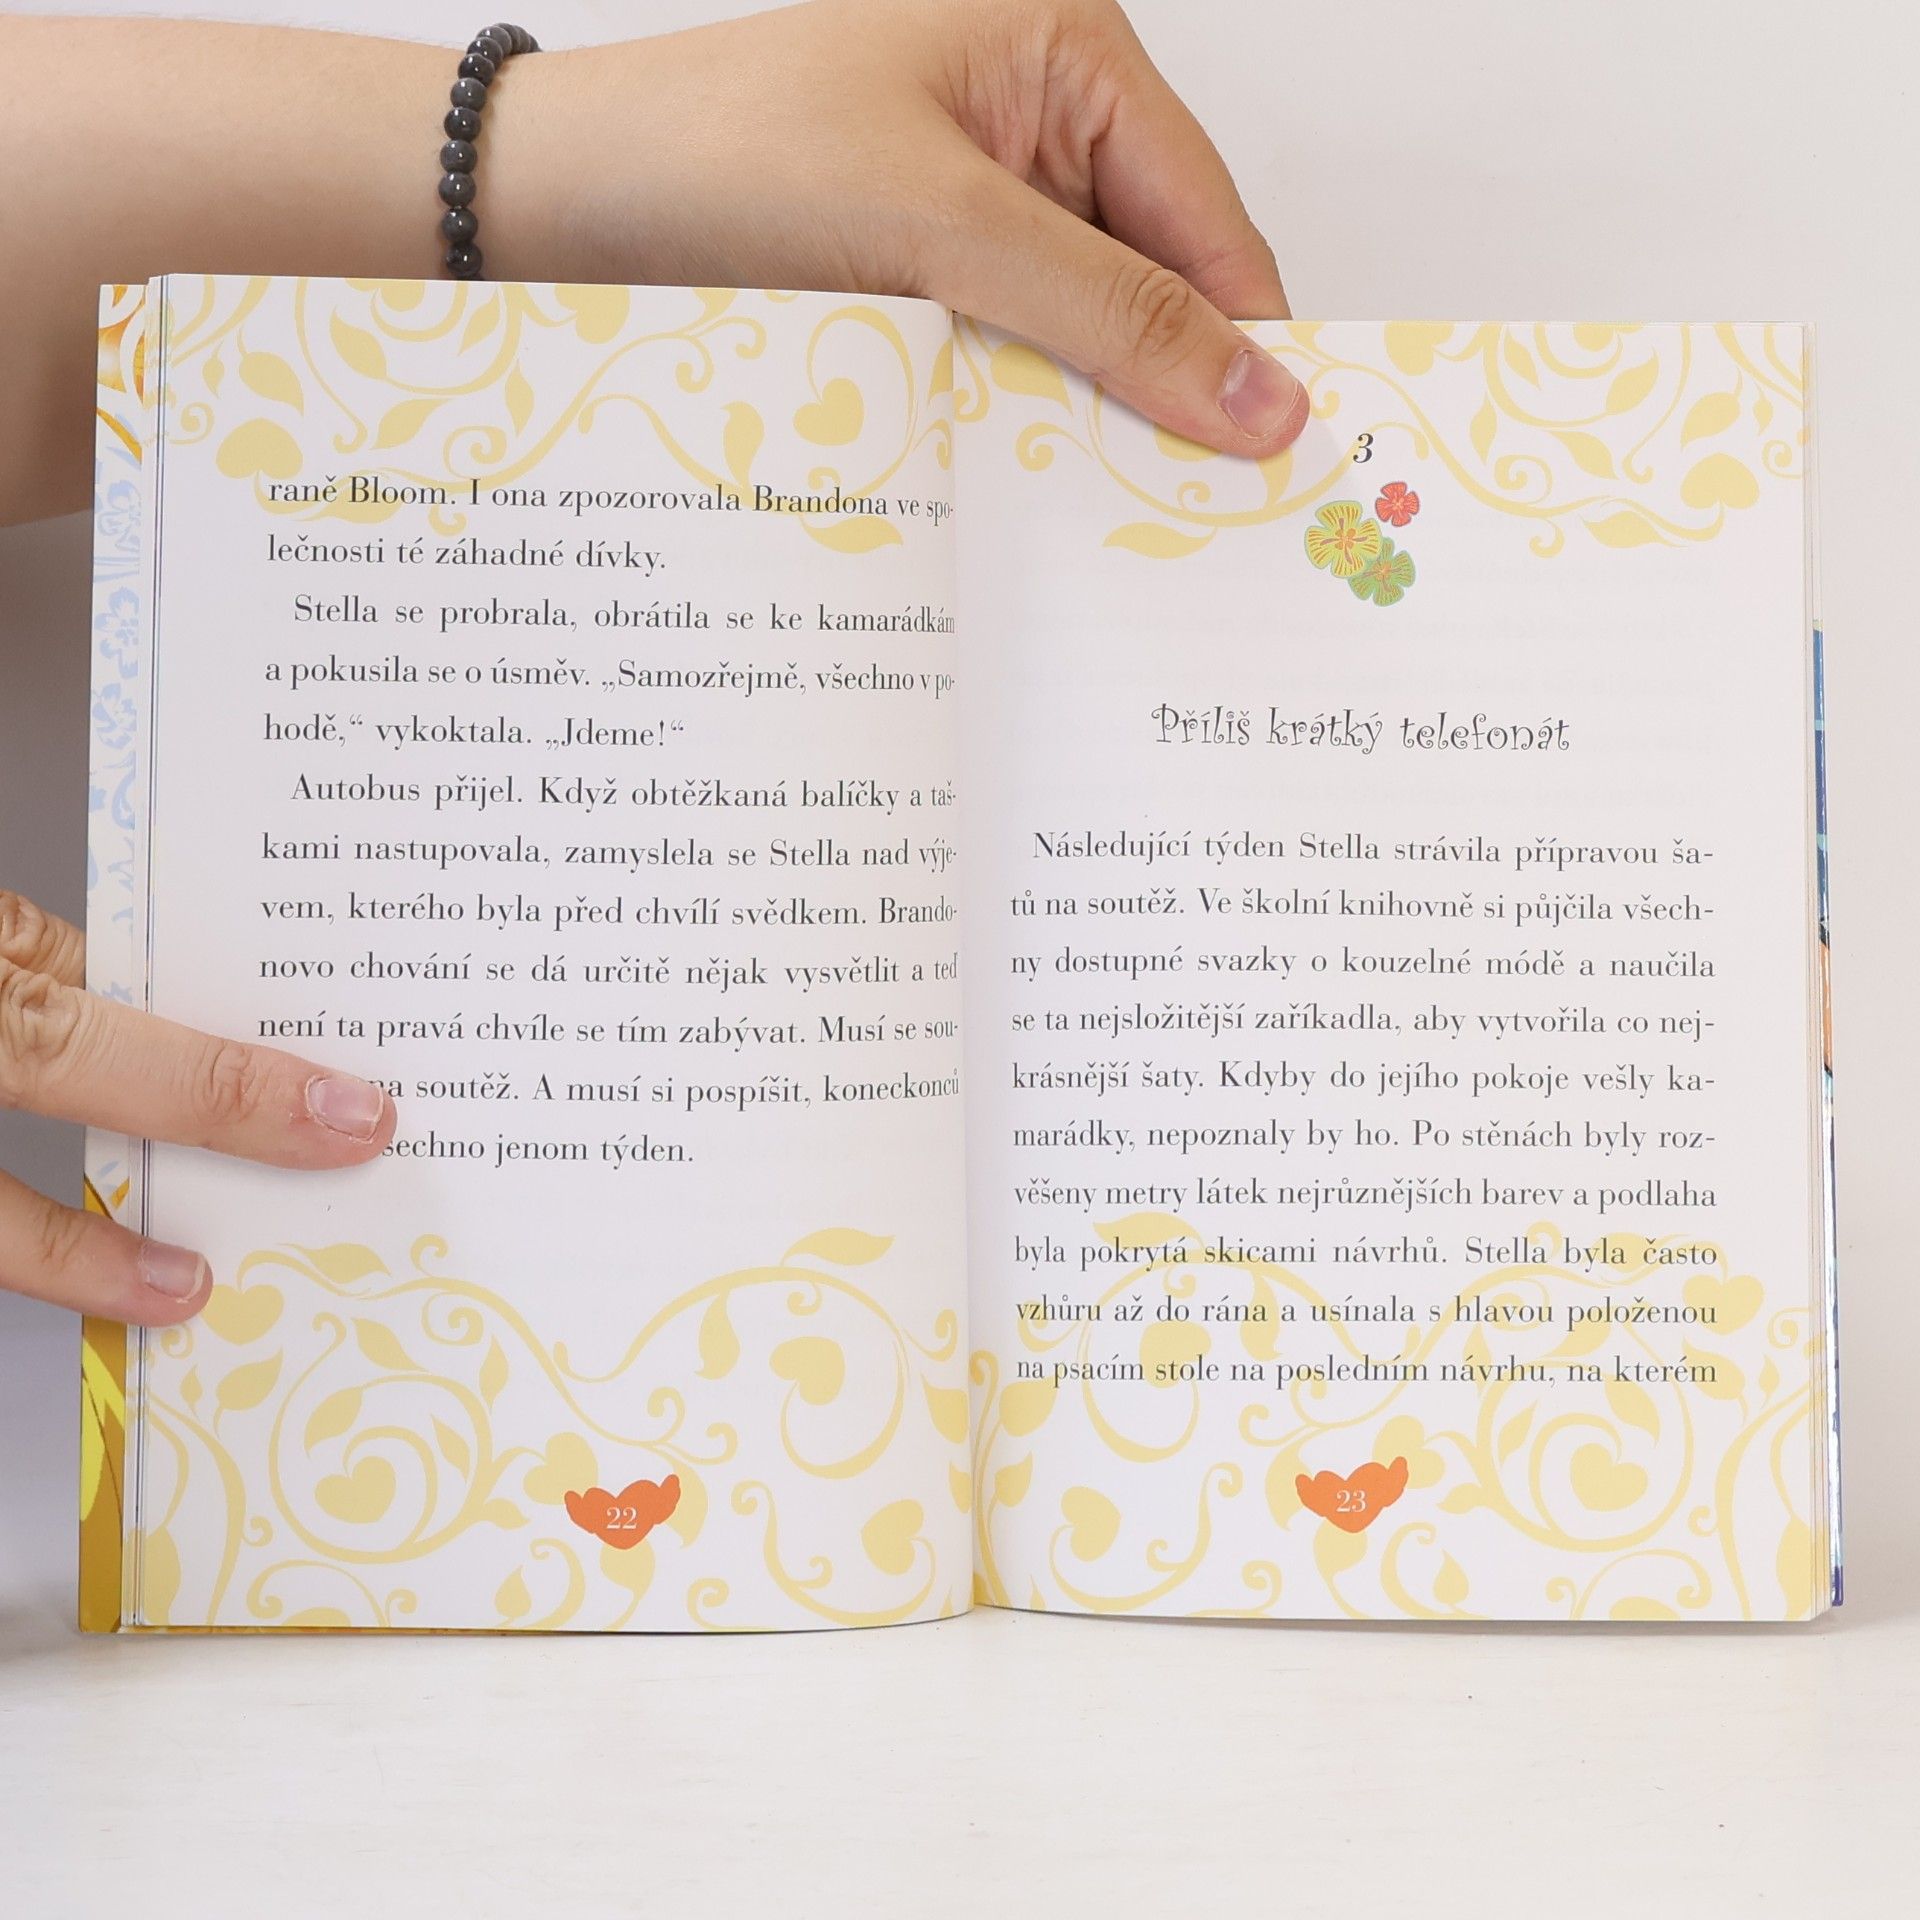 raně Bloom. I ona zpozorovala Brandona ve spo-
lečnosti té záhadné dívky.
Stella se probrala, obrátila se ke kamarádkám
a pokusila se o úsměv. „Samozřejmě, všechno v po-
hodě,“ vykoktala. „Jdeme!“
Autobus přijel. Když obtěžkaná balíčky a taš-
kami nastupovala, zamyslela se Stella nad výje-
vem, kterého byla před chvílí svědkem. Brando-
novo chování se dá určitě nějak vysvětlit a teď
není ta pravá chvíle se tím zabývat. Musí se sou-
na soutěž. A musí si pospíšit, koneckonců
jenom týden.
22
3
Příliš krátký telefonát
Následující týden Stella strávila přípravou ša-
tů na soutěž. Ve školní knihovně si půjčila všech-
ny dostupné svazky o kouzelné módě a naučila
se ta nejsložitější zaříkadla, aby vytvořila co nej-
krásnější šaty. Kdyby do jejího pokoje vešly ka-
marádky, nepoznaly by ho. Po stěnách byly roz-
věšeny metry látek nejrůznějších barev a podlaha
byla pokrytá skicami návrhů. Stella byla často
vzhůru až do rána a usínala s hlavou položenou
na psacím stole na posledním návrhu, na kterém
23